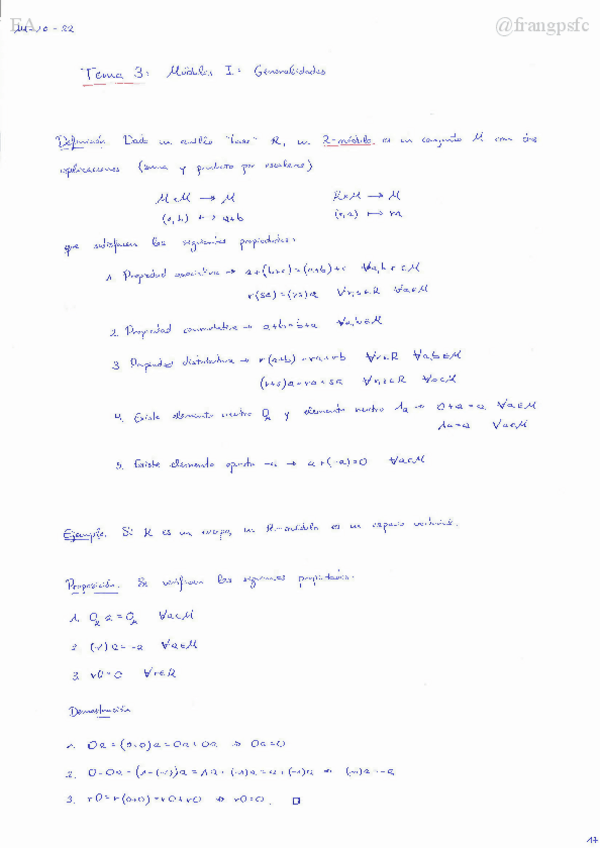 EA
@frangpsfc
14-10-22
Tema 3: Módulos I: Generalidades
Definición. Dado un anillo "base" R, un R-módulo es un conjunto M con dos
aplicaciones (suma y producto por escalares)
M×M → M R×M → M
(a,b) ↦ a+b (r,a) ↦ ra
que satisfacen las siguientes propiedades:
1. Propiedad asociativa → a+(b+c)=(a+b)+c ∀a,b,c∈M
r(sa)=(rs)a ∀r,s∈R ∀a∈M
2. Propiedad conmutativa → a+b=b+a ∀a,b∈M
3. Propiedad distributiva → r(a+b)=ra+rb ∀r∈R ∀a,b∈M
(r+s)a=ra+sa ∀r,s∈R ∀a∈M
4. Existe elemento neutro 0 y elemento neutro 1 → 0+a=a ∀a∈M
1a=a ∀a∈M
5. Existe elemento opuesto -a → a+(-a)=0 ∀a∈M
Ejemplo. Si R es un cuerpo, un R-módulo es un espacio vectorial.
Proposición. Se verifican las siguientes propiedades:
1. 0 a = 0 ∀a∈M
2. (-1)a=-a ∀a∈M
3. r0=0 ∀r∈R
Demostración
1. 0a=(0+0)a=0a+0a ⇒ 0a=0
2. 0=0a=(1+(-1))a=1a+(-1)a=a+(-1)a ⇒ (-1)a=-a
3. r0=r(0+0)=r0+r0 ⇒ r0=0. □
17